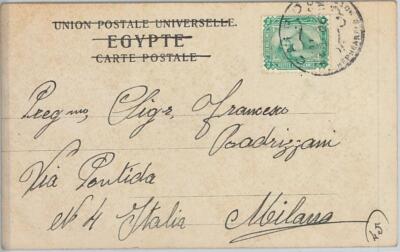 UNION POSTALE UNIVERSELLE.
EGYPTE
CARTE POSTALE
Preg.mo Sigr Francesco
Badrizzani
Via Pontida
N 4 Italia Milano
45